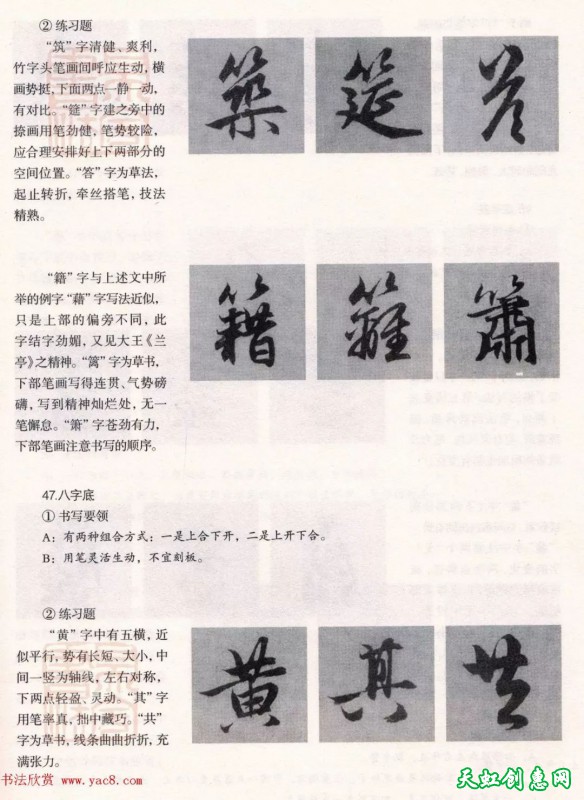 ② 练习题
“筑”字清健、爽利，
竹字头笔画间呼应生动，横
画势挺，下面两点一静一动，
有对比。“筵”字建之旁中的
捺画用笔劲健，笔势较险，
应合理安排好上下两部分的
空间位置。“答”字为草法，
起止转折，牵丝搭笔，技法
精熟。
築 筵 答
“籍”字与上述文中所
举的例字“藉”字写法近似，
只是上部的偏旁不同，此
字结字劲媚，又见大王《兰
亭》之精神。“篱”字为草书，
下部笔画写得连贯、气势磅
礴，写到精神灿烂处，无一
笔懈怠。“箫”字苍劲有力，
下部笔画注意书写的顺序。
籍 籬 簫
47.八字底
① 书写要领
A：有两种组合方式：一是上合下开，二是上开下合。
B：用笔灵活生动，不宜刻板。
② 练习题
“黄”字中有五横，近
似平行，势有长短、大小，中
间一竖为轴线，左右对称，
下两点轻盈、灵动。“其”字
用笔率真，拙中藏巧。“共”
字为草书，线条曲曲折折，充
满张力。
黄 其 共
书法欣赏 www.yac8.com
天虹创意网